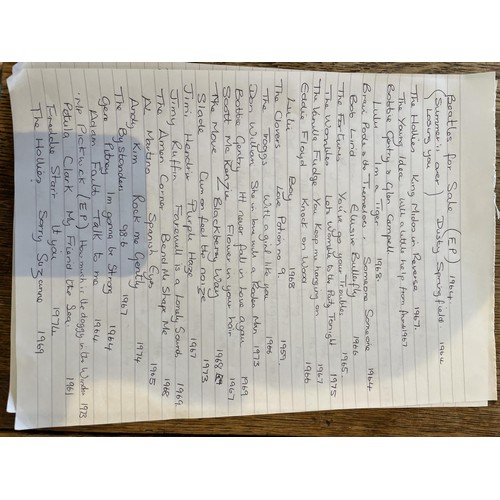 Beatles for Sale (EP) 1964.
(Summer is over) Dusty Springfield 1964
(Loosing you)
The Hollies King Midas in Reverse 1967.
The Young Idea With a little help from friends 1967.
Bobbie Gentry & Glen Campbell
Lulu I'm a Tiger 1968.
Brian Poole & the Tremeloes. Someone Someone 1964
Bob Lind Elusive Butterfly 1966
The Fortunes You've got your Troubles 1965
The Wombles Lets Womble to the Party Tonight 1975
The Vanilla Fudge You Keep me hanging on 1967
Eddie Floyd Knock on Wood 1966
Lulu Boy 1968
The Clovers Love Potion no 9 1959.
The Troggs With a girl like you 1966
Don Winton She in love with a Rodeo Man 1973
Bobbie Gentry Ill never fall in love again 1969
Scott McKenzie Flower in your hair 1967
The Move Blackberry Way 1968
Slade Cum on feel the noize 1973
Jimi Hendrix Purple Haze 1967
Jimmy Ruffin Farewell is a lonely Sound 1969
The Amen Corner Bend Me Shape Me 1968
AL Martino Spanish Eyes 1965
Andy Kim Rock me Gently 1974
The Bystanders 98.6 1967
Gene Pitney Im gonna be Strong 1964
Adam Faith Talk to me 1964
Mr Pickwick (EP) How much is the doggy in the Window 1973
Petula Clark My Friend the Sea 1961
Freddie Starr It you 1974
The Hollies Sorry Suzanne 1969